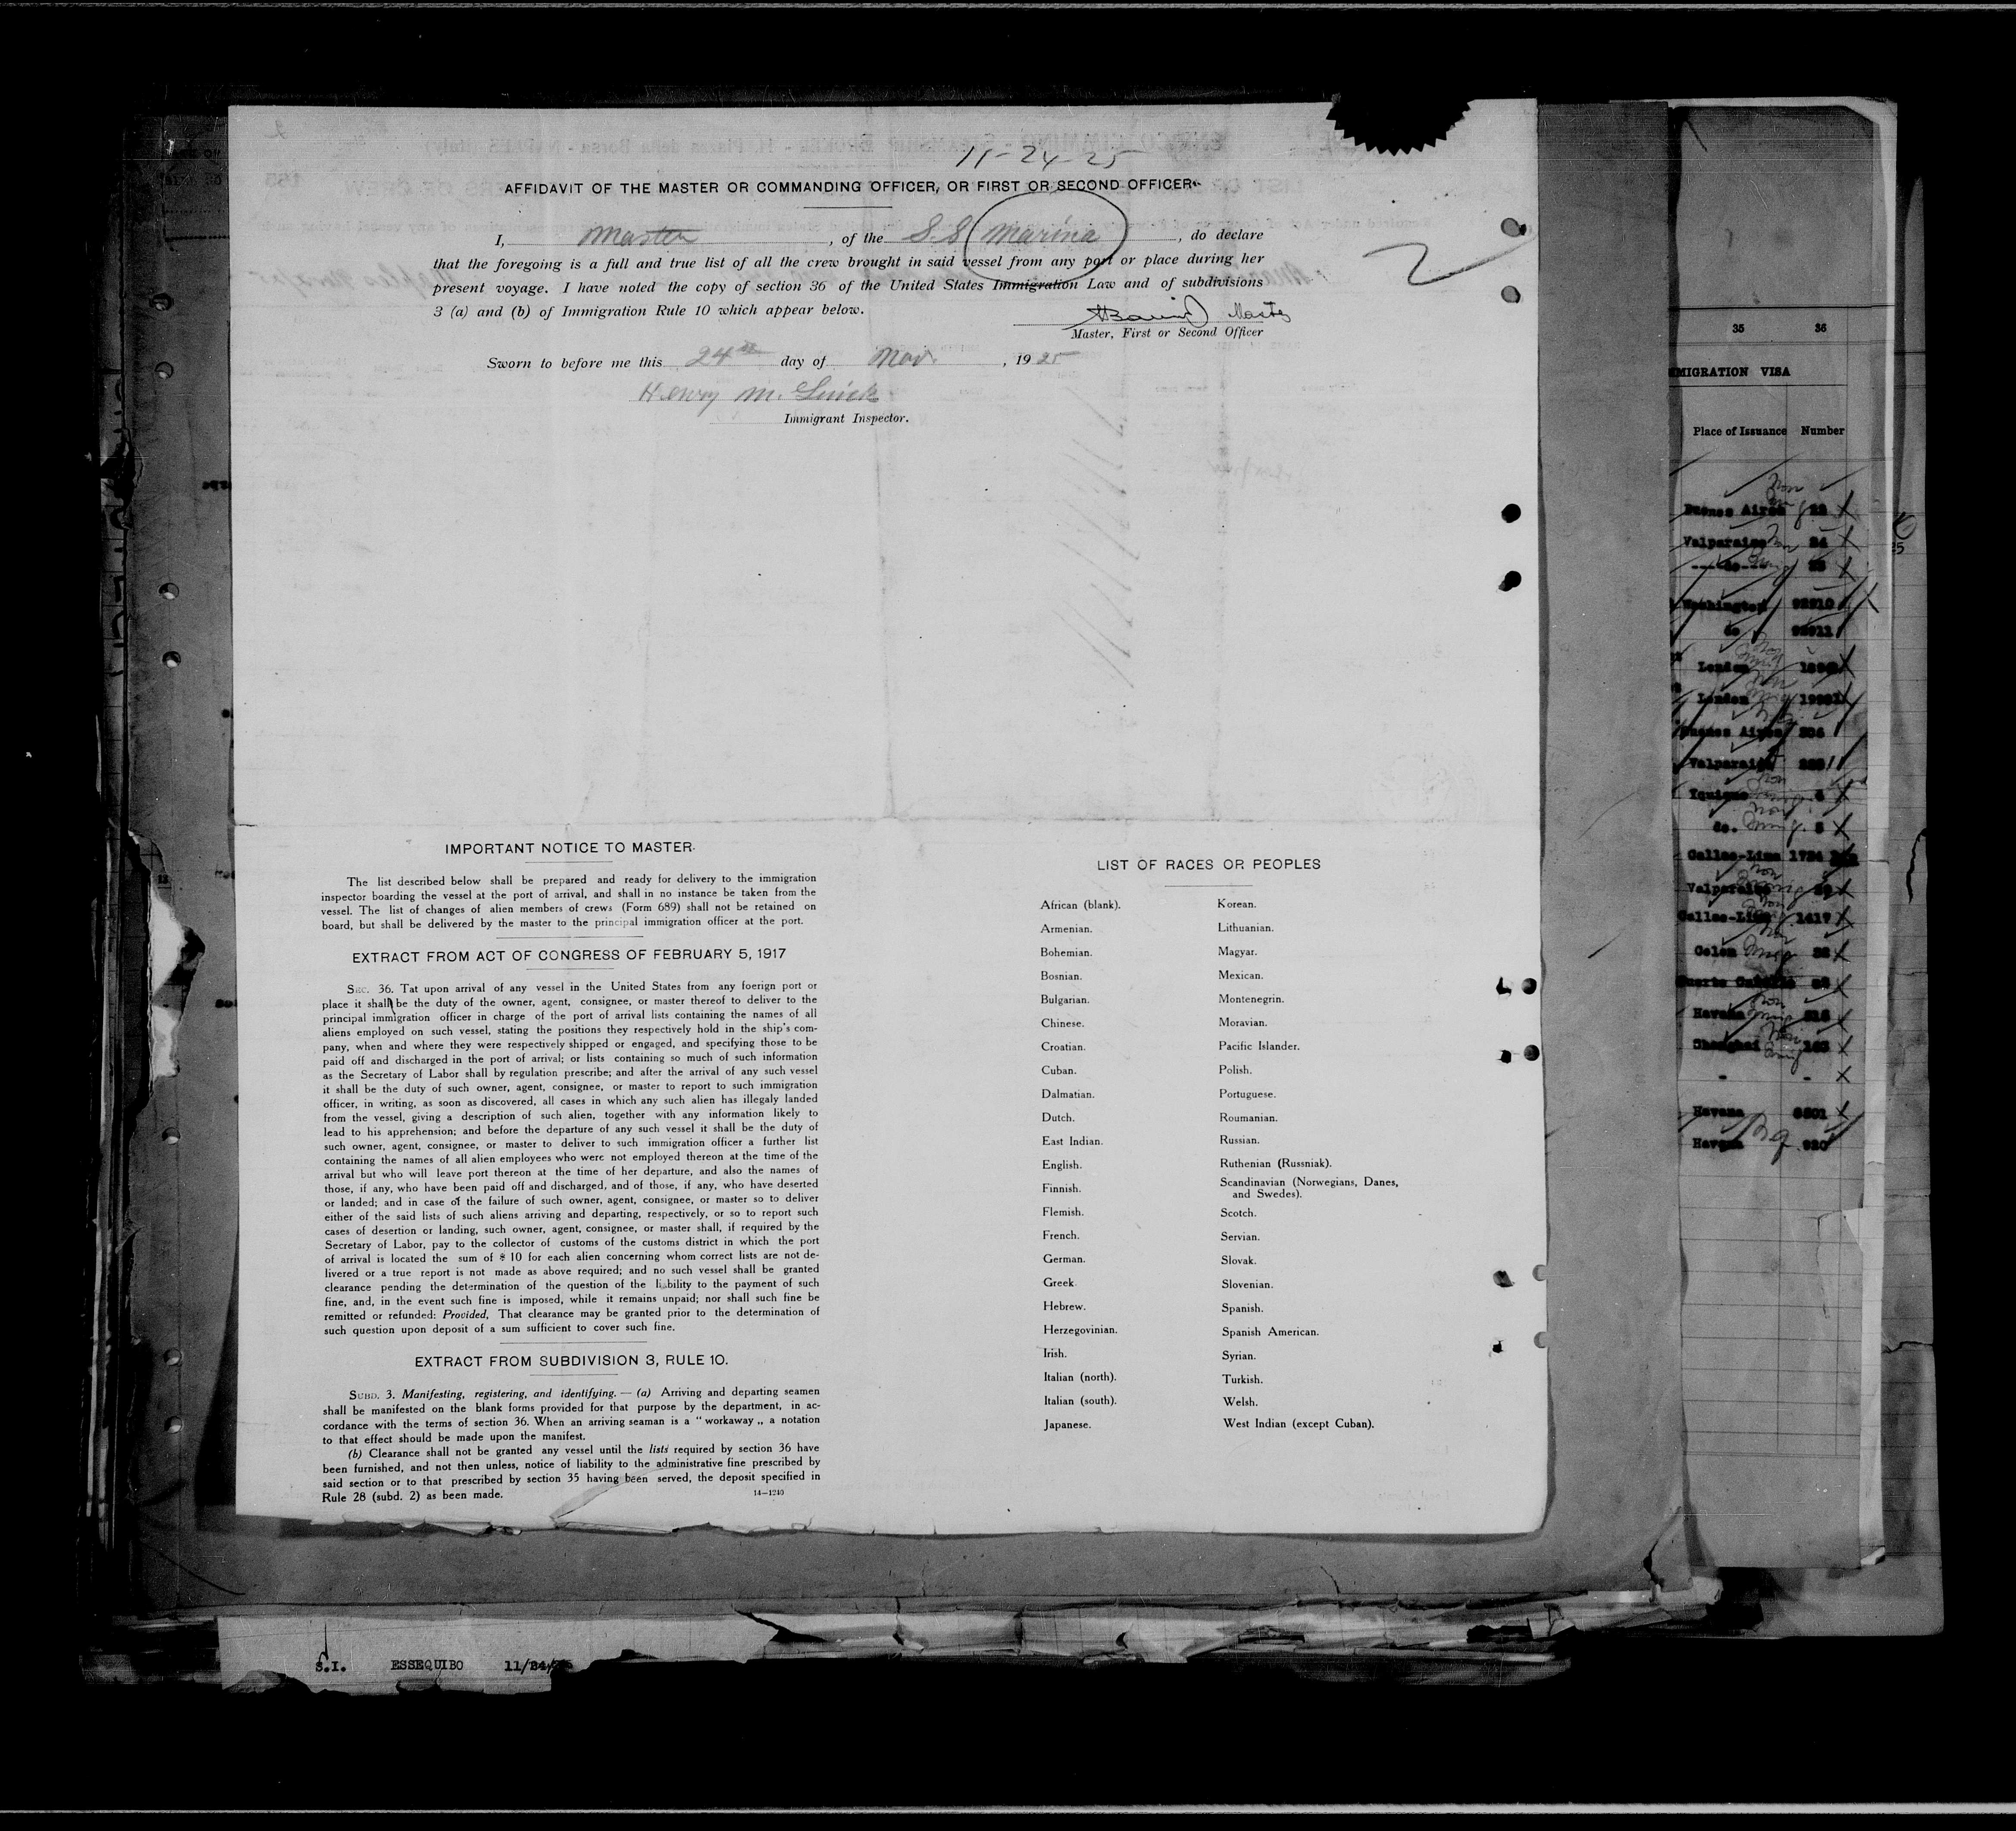 11-24-25
AFFIDAVIT OF THE MASTER OR COMMANDING OFFICER, OR FIRST OR SECOND OFFICER
I, Master, of the S.S Marina, do declare
that the foregoing is a full and true list of all the crew brought in said vessel from any port or place during her
present voyage. I have noted the copy of section 36 of the United States Immigration Law and of subdivisions
3 (a) and (b) of Immigration Rule 10 which appear below.
Master
Master, First or Second Officer
2
Sworn to before me this 24th day of Nov. , 1925
Henry M.
Immigrant Inspector.
IMPORTANT NOTICE TO MASTER.
The list described below shall be prepared and ready for delivery to the immigration
inspector boarding the vessel at the port of arrival, and shall in no instance be taken from the
vessel. The list of changes of alien members of crews (Form 689) shall not be retained on
board, but shall be delivered by the master to the principal immigration officer at the port.
EXTRACT FROM ACT OF CONGRESS OF FEBRUARY 5, 1917
SEC. 36. Tat upon arrival of any vessel in the United States from any foerign port or
place it shall be the duty of the owner, agent, consignee, or master thereof to deliver to the
principal immigration officer in charge of the port of arrival lists containing the names of all
aliens employed on such vessel, stating the positions they respectively hold in the ship's com-
pany, when and where they were respectively shipped or engaged, and specifying those to be
paid off and discharged in the port of arrival; or lists containing so much of such information
as the Secretary of Labor shall by regulation prescribe; and after the arrival of any such vessel
it shall be the duty of such owner, agent, consignee, or master to report to such immigration
officer, in writing, as soon as discovered, all cases in which any such alien has illegaly landed
from the vessel, giving a description of such alien, together with any information likely to
lead to his apprehension; and before the departure of any such vessel it shall be the duty of
such owner, agent, consignee, or master to deliver to such immigration officer a further list
containing the names of all alien employees who were not employed thereon at the time of the
arrival but who will leave port thereon at the time of her departure, and also the names of
those, if any, who have been paid off and discharged, and of those, if any, who have deserted
or landed; and in case of the failure of such owner, agent, consignee, or master so to deliver
either of the said lists of such aliens arriving and departing, respectively, or so to report such
cases of desertion or landing, such owner, agent, consignee, or master shall, if required by the
Secretary of Labor, pay to the collector of customs of the customs district in which the port
of arrival is located the sum of $ 10 for each alien concerning whom correct lists are not de-
livered or a true report is not made as above required; and no such vessel shall be granted
clearance pending the determination of the question of the liability to the payment of such
fine, and, in the event such fine is imposed, while it remains unpaid; nor shall such fine be
remitted or refunded: Provided, That clearance may be granted prior to the determination of
such question upon deposit of a sum sufficient to cover such fine.
EXTRACT FROM SUBDIVISION 3, RULE 10.
SUBD. 3. Manifesting, registering, and identifying. — (a) Arriving and departing seamen
shall be manifested on the blank forms provided for that purpose by the department, in ac-
cordance with the terms of section 36. When an arriving seaman is a " workaway „ a notation
to that effect should be made upon the manifest.
(b) Clearance shall not be granted any vessel until the lists required by section 36 have
been furnished, and not then unless, notice of liability to the administrative fine prescribed by
said section or to that prescribed by section 35 having been served, the deposit specified in
Rule 28 (subd. 2) as been made.
14—1240
LIST OF RACES OR PEOPLES
African (blank).
Armenian.
Bohemian.
Bosnian.
Bulgarian.
Chinese.
Croatian.
Cuban.
Dalmatian.
Dutch.
East Indian.
English.
Finnish.
Flemish.
French.
German.
Greek
Hebrew.
Herzegovinian.
Irish.
Italian (north).
Italian (south).
Japanese.
Korean.
Lithuanian.
Magyar.
Mexican.
Montenegrin.
Moravian.
Pacific Islander.
Polish.
Portuguese.
Roumanian.
Russian.
Ruthenian (Russniak).
Scandinavian (Norwegians, Danes,
and Swedes).
Scotch.
Servian.
Slovak.
Slovenian.
Spanish.
Spanish American.
Syrian.
Turkish.
Welsh.
West Indian (except Cuban).
35 36
MIGRATION VISA
Place of Issuance Number
Buenos Aires
Valparaiso 24
Washington 92910
do 92911
London
London
Buenos Aires
Valparaiso
do. 5
Callao-Lima 1724
Valparaiso
Callao-Lima 1417
Colon
Havana
Shanghai 163
Havana
Havana 920
S.I. ESSEQUIBO 11/24/